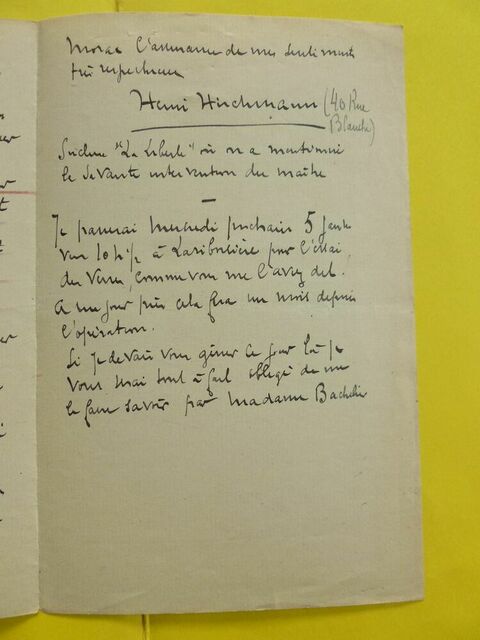 l'assurance de mes sentiments
très respectueux
Henri Hirchmann (40 Rue
Blanche)
Inclus "La Liberté" où on a mentionné
la savante intervention du maître
Je passerai Mercredi prochain 5 
vers 10h½ à Lariboisière pour l'essai
du verre, comme vous me l'avez dit.
A un jour près cela fera un mois depuis
l'opération.
Si je devais vous gêner ce jour là je
vous serai tout à fait obligé de me
le faire savoir par Madame Bachelier